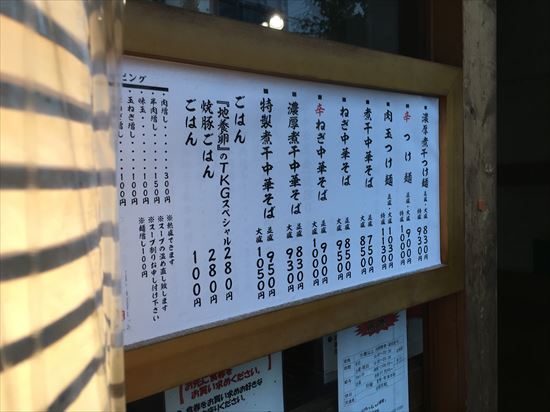 ■濃厚煮干つけ麺 正盛・大盛 830円
特盛 930円
■辛つけ麺 正盛・大盛 900円
特盛 1000円
■肉玉つけ麺 正盛・大盛 1030円
特盛 1130円
■煮干中華そば 正盛 750円
大盛 850円
■ねぎ中華そば 正盛 850円
大盛 950円
■辛ねぎ中華そば 正盛 900円
大盛 1000円
■濃厚煮干中華そば 正盛 830円
大盛 930円
■特製煮干中華そば 正盛 950円
大盛 1050円
ごはん
『地養卵』のTKGスペシャル 280円
焼豚ごはん 280円
ごはん 100円
ピング
・肉増し・・・・・300円
・半肉増し・・・・150円
・味玉・・・・・・100円
・玉ねぎ増し・・・100円
※熱盛できます
※スープの温め直し致します
※スープ割りお申し付け下さい
※麺増し100円
お先に食券を
お買い求めください。